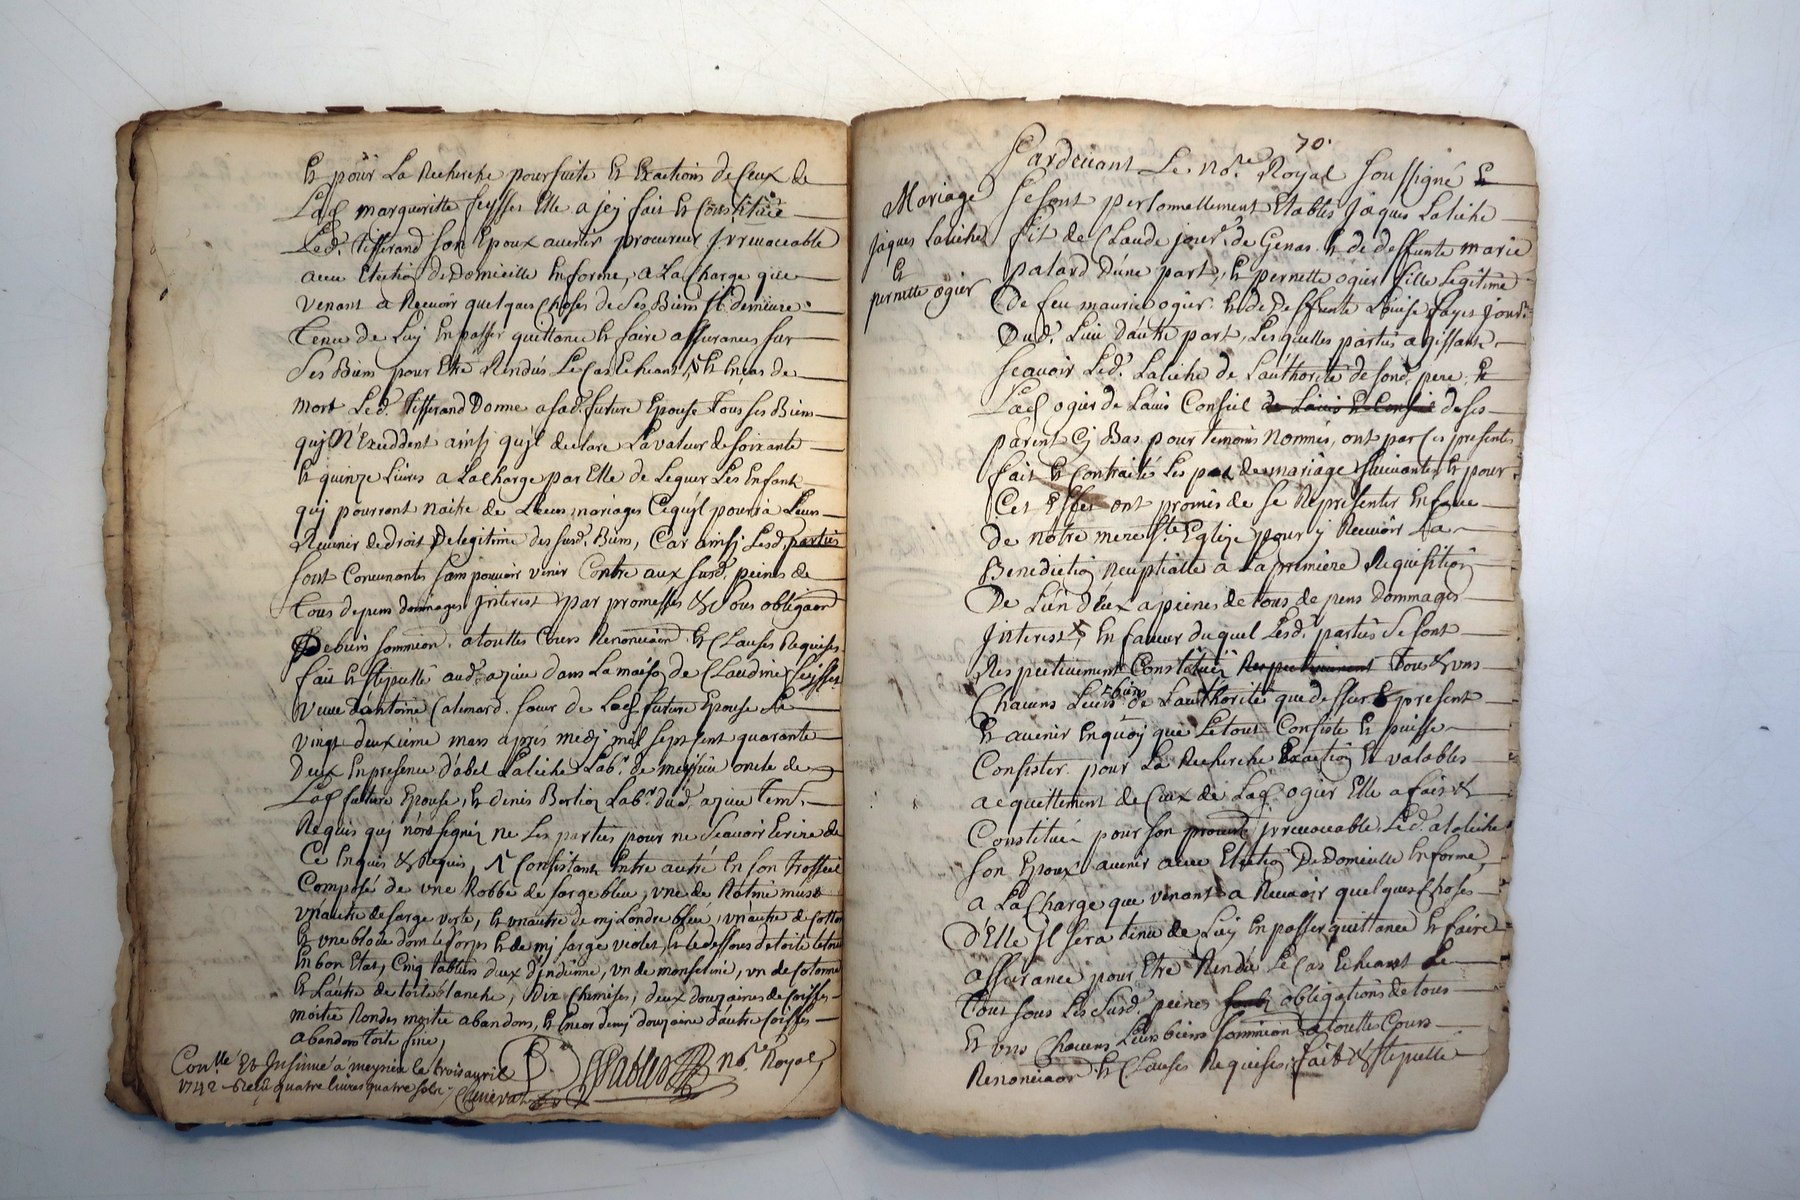 Et pour La Recherche poursuite Et Exactions de Ceux de
Lad. margueritte feysses Elle a jcy fait Et Constitué
Led. Tisserand son Epoux avenir procureur Irrevocable
avec Election de Domicille En forme, a La Charge que
venant a Recevoir quelques Choses de Ses Biens Il demeure
Tenu de Luy En passer quittance Et faire assurances sur
Ses Biens pour Etre Rendus Le Cas Echeant, Et En cas de
mort Led. Tisserand Donne a sad. future Epouse Tous ses Biens
quj N'Exceddent ainsj qu'jl declare La valeur de soixante
Et quinze Livres a La charge par Elle de Leguer Les Enfants
quj pourront naitre de Leurs mariages Ce qu'jl pourra Leur
Revenir de droit De legitime des susd. Biens, Car ainsj Lesd. parties
sont Convenantes sans pouvoir venir Contre aux susd. peines de
tous depens dommages Interest par promesses & sous obligaon
De biens sommion. a touttes Cours Renonciaon. Et Clauses Requises
fait Et stipullé aud. ajcu dans La maison de Claudine feysses
veuve d'antoine Calemard. sœur de Lad. future Epouse Le
vingt deuxième mars après medj mil sept sent quarante
Deux En presence d'abel Laliche Labr. de meyssiu oncle de
Lad. future Epouse, Et denis Bertion Labr. dud. ajcu tem.
Requis quj n'ont signéz ne Les parties pour ne Scavoir Ecrire de
Ce Enquis & Requis, Consistant Entre autre En son trossel
Composé de vne Robbe de sarge bleu, vne de Ratine musc
vn autre de sarge verte, Et vn autre de mj Londre bleu, vn autre de Cotton
Et vne blode dont Le Corps Et de mj sarge violet, Et Le dessous de toile Letout
En bon Etat, Cinq tabliers deux d'indienne, vn de monseliné, vn de Cotonne
Et L'autre de toile blanche, Dix Chemises, deux douzaines de Coiffes
moitié Rondes moitié abandons, Et Encor demj douzaine d'autre Coiffes
abandons toile fine,
Conllé Et Insinué à meyzieu le trois avril
1742 Reçu quatre livres quatre sols
Nore. Royal
70.
Pardevant Le Nore. Royal soussigné Et
Mariage
Jaques Laliche
Et
pernette ogier
se sont personnellement Etablis Jaques Laliche
fils de Claude jourr. de Genas Et de deffunte marie
palard d'une part, Et pernette ogier fille Legitime
De feu maurice ogier Et de Deffunte Louise fayet jourr.
Dud. Lieu d'autre part, Lesquelles parties agissants,
scavoir Led. Laliche de L'authorité de sond. pere, Et
Lad. ogier de Lavis Conseil de Lavis Et Conseil de ses
parents Cj Bas pour temoins Nommés, ont par Ces presentes
fait Et Contraités Les pat. de mariage suivantes Et pour
Cet Effet ont promis de se Representer En face
de notre mere Ste. Eglize pour y Recevoir La
Benediction Neuptialle a La premiere Requisition
De L'un d'Eux a peines de tous depens dommages
Interest, En faveur duquel Lesd. parties se sont
Respectivement Constitués Respectivement tous & vns
Chacuns Leurs biens de L'authorité que dessus present
Et avenir En quoy que Le tout Consiste Et puisse
Consister pour La Recherche Exaction Et valables
acquittement de Ceux de Lad. ogier Elle a fait &
Constitué pour son procureur Irrevocable Led. Laliche
son Epoux avenir avec Election De Domicille En forme,
a La Charge que venant a Recevoir quelques Choses
d'Elle Il sera tenu de Luy En passer quittance Et faire
assurance pour Etre Rendu Le Cas Echeant Le
tout sous Les susd. peines obligations de tous
Et vns Chacuns Leurs biens sommion a touttes Cours
Renonciaon Et Clauses Requises, fait & stipullé